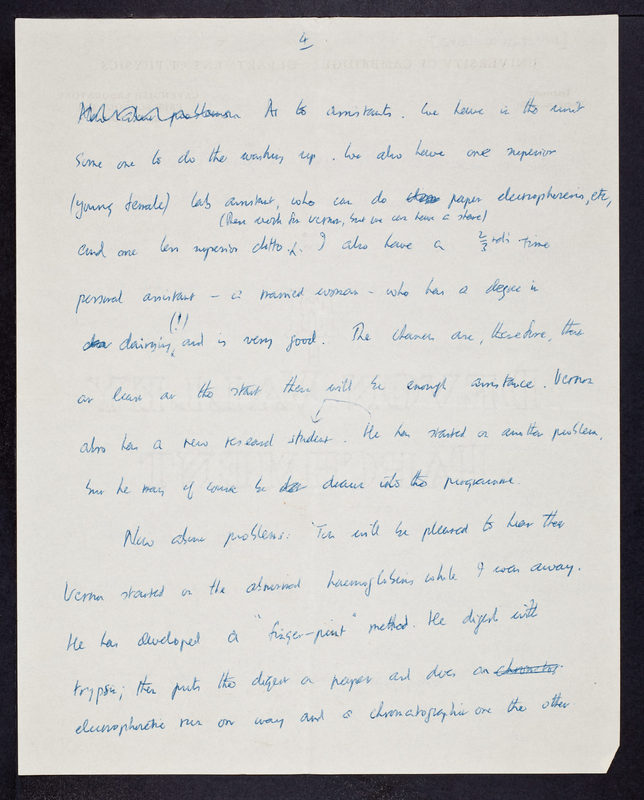 4
As to assistants. We have in the unit
some one to do the washing up. We also have one superior
(young female) lab assistant, who can do paper electrophoresis, etc,
(these work for Vernon, but we can have a share)
and one less superior ditto. I also have a 2/3rds time
personal assistant – a married woman – who has a degree in
(!)
dairying, and is very good. The chances are, therefore, that
at least at the start there will be enough assistance. Vernon
also has a new research student. He has started on another problem,
but he may of course be drawn into the programme.
Now about problems: You will be pleased to hear that
Vernon started on the abnormal haemoglobins while I was away.
He has developed a "finger-print" method. He digests with
trypsin; then puts the digest on paper and does an chromatog
electrophoretic run one way and a chromatographic one the other